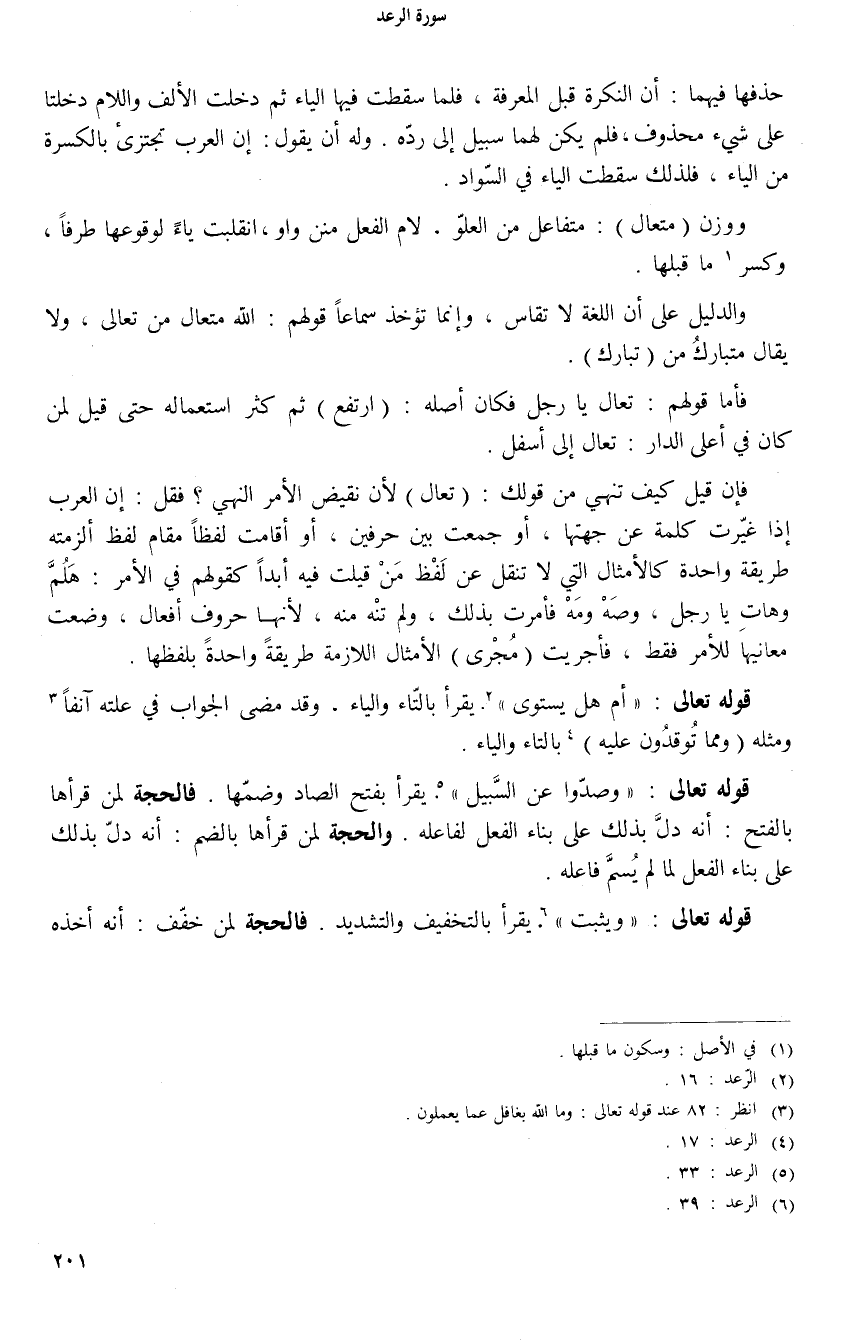 سورة الرعد
حذفها فيهما : أن النكرة قبل المعرفة ، فلما سقطت فيها الياء ثم دخلت الألف واللام دخلتا
على شيء محذوف ، فلم يكن لهما سبيل إلى ردّه . وله أن يقول : إن العرب تجتزىٔ بالكسرة
من الياء ، فلذلك سقطت الياء في السّواد .
ووزن ( متعال ) : متفاعل من العلوّ . لام الفعل منن واو ، انقلبت ياءً لوقوعها طرفاً ،
وكسر ١ ما قبلها .
والدليل على أن اللغة لا تقاس ، وإنما تؤخذ سماعاً قولهم : الله متعال من تعالى ، ولا
يقال متباركُ من ( تبارك ) .
فأما قولهم : تعال يا رجل فكان أصله : ( ارتفع ) ثم كثر استعماله حتى قيل لمن
كان في أعلى الدار : تعال إلى أسفل .
فإن قيل كيف تنهي من قولك : ( تعال ) لأن نقيض الأمر النهي ؟ فقل : إن العرب
إذا غيّرت كلمة عن جهتها ، أو جمعت بين حرفين ، أو أقامت لفظاً مقام لفظ ألزمته
طريقة واحدة كالأمثال التي لا تنقل عن لَفْظ مَنْ قيلت فيه أبداً كقولهم في الأمر : هَلُمَّ
وهاتِ يا رجل ، وصَهْ ومَهْ فأمرت بذلك ، ولم تنْه منه ، لأنهـا حروف أفعال ، وضعت
معانيها للأمر فقط ، فأجريت ( مُجْرى ) الأمثال اللازمة طريقةً واحدةً بلفظها .
قوله تعالى : « أم هل يستوى » ٢. يقرأ بالتّاء والياء . وقد مضى الجواب في علته آنفاً ٣
ومثله ( ومما تُوقدُون عليه ) ٤ بالتاء والياء .
قوله تعالى : « وصدّوا عن السَّبيل » ٥. يقرأ بفتح الصاد وضمّها . فالحجة لمن قرأها
بالفتح : أنه دلَّ بذلك على بناء الفعل لفاعله . والحجة لمن قرأها بالضم : أنه دلّ بذلك
على بناء الفعل لما لم يُسمَّ فاعله .
قوله تعالى : « ويثبت » ٦. يقرأ بالتخفيف والتشديد . فالحجة لمن خفّف : أنه أخذه
(١) في الأصل : وسكون ما قبلها .
(٢) الرّعد : ١٦ .
(٣) انظر : ٨٢ عند قوله تعالى : وما الله بغافل عما يعملون .
(٤) الرعد : ١٧ .
(٥) الرعد : ٣٣ .
(٦) الرعد : ٣٩ .
٢٠١